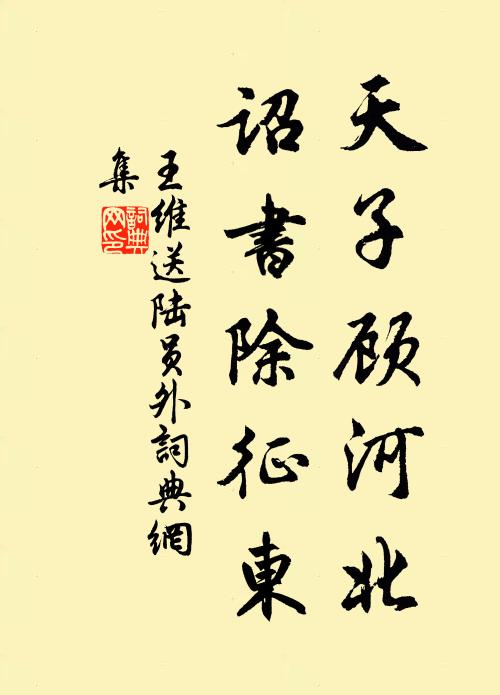 天子顾河北
诏書除征東
王维送陆员外詞典網
集
詞典网印